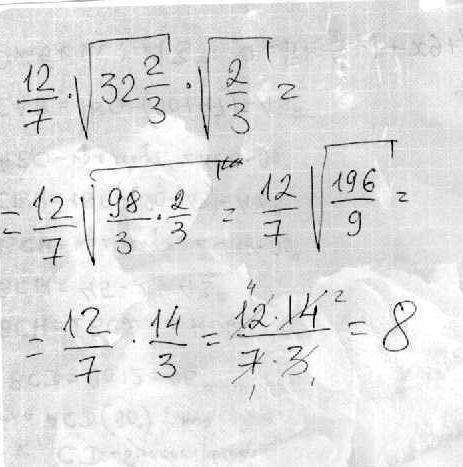 12/7 · √(32 2/3) · √(2/3) =
= 12/7 √(98/3 · 2/3) = 12/7 √(196/9) =
= 12/7 · 14/3 = (12 4 · 14 2)/(7 1 · 3 1) = 8